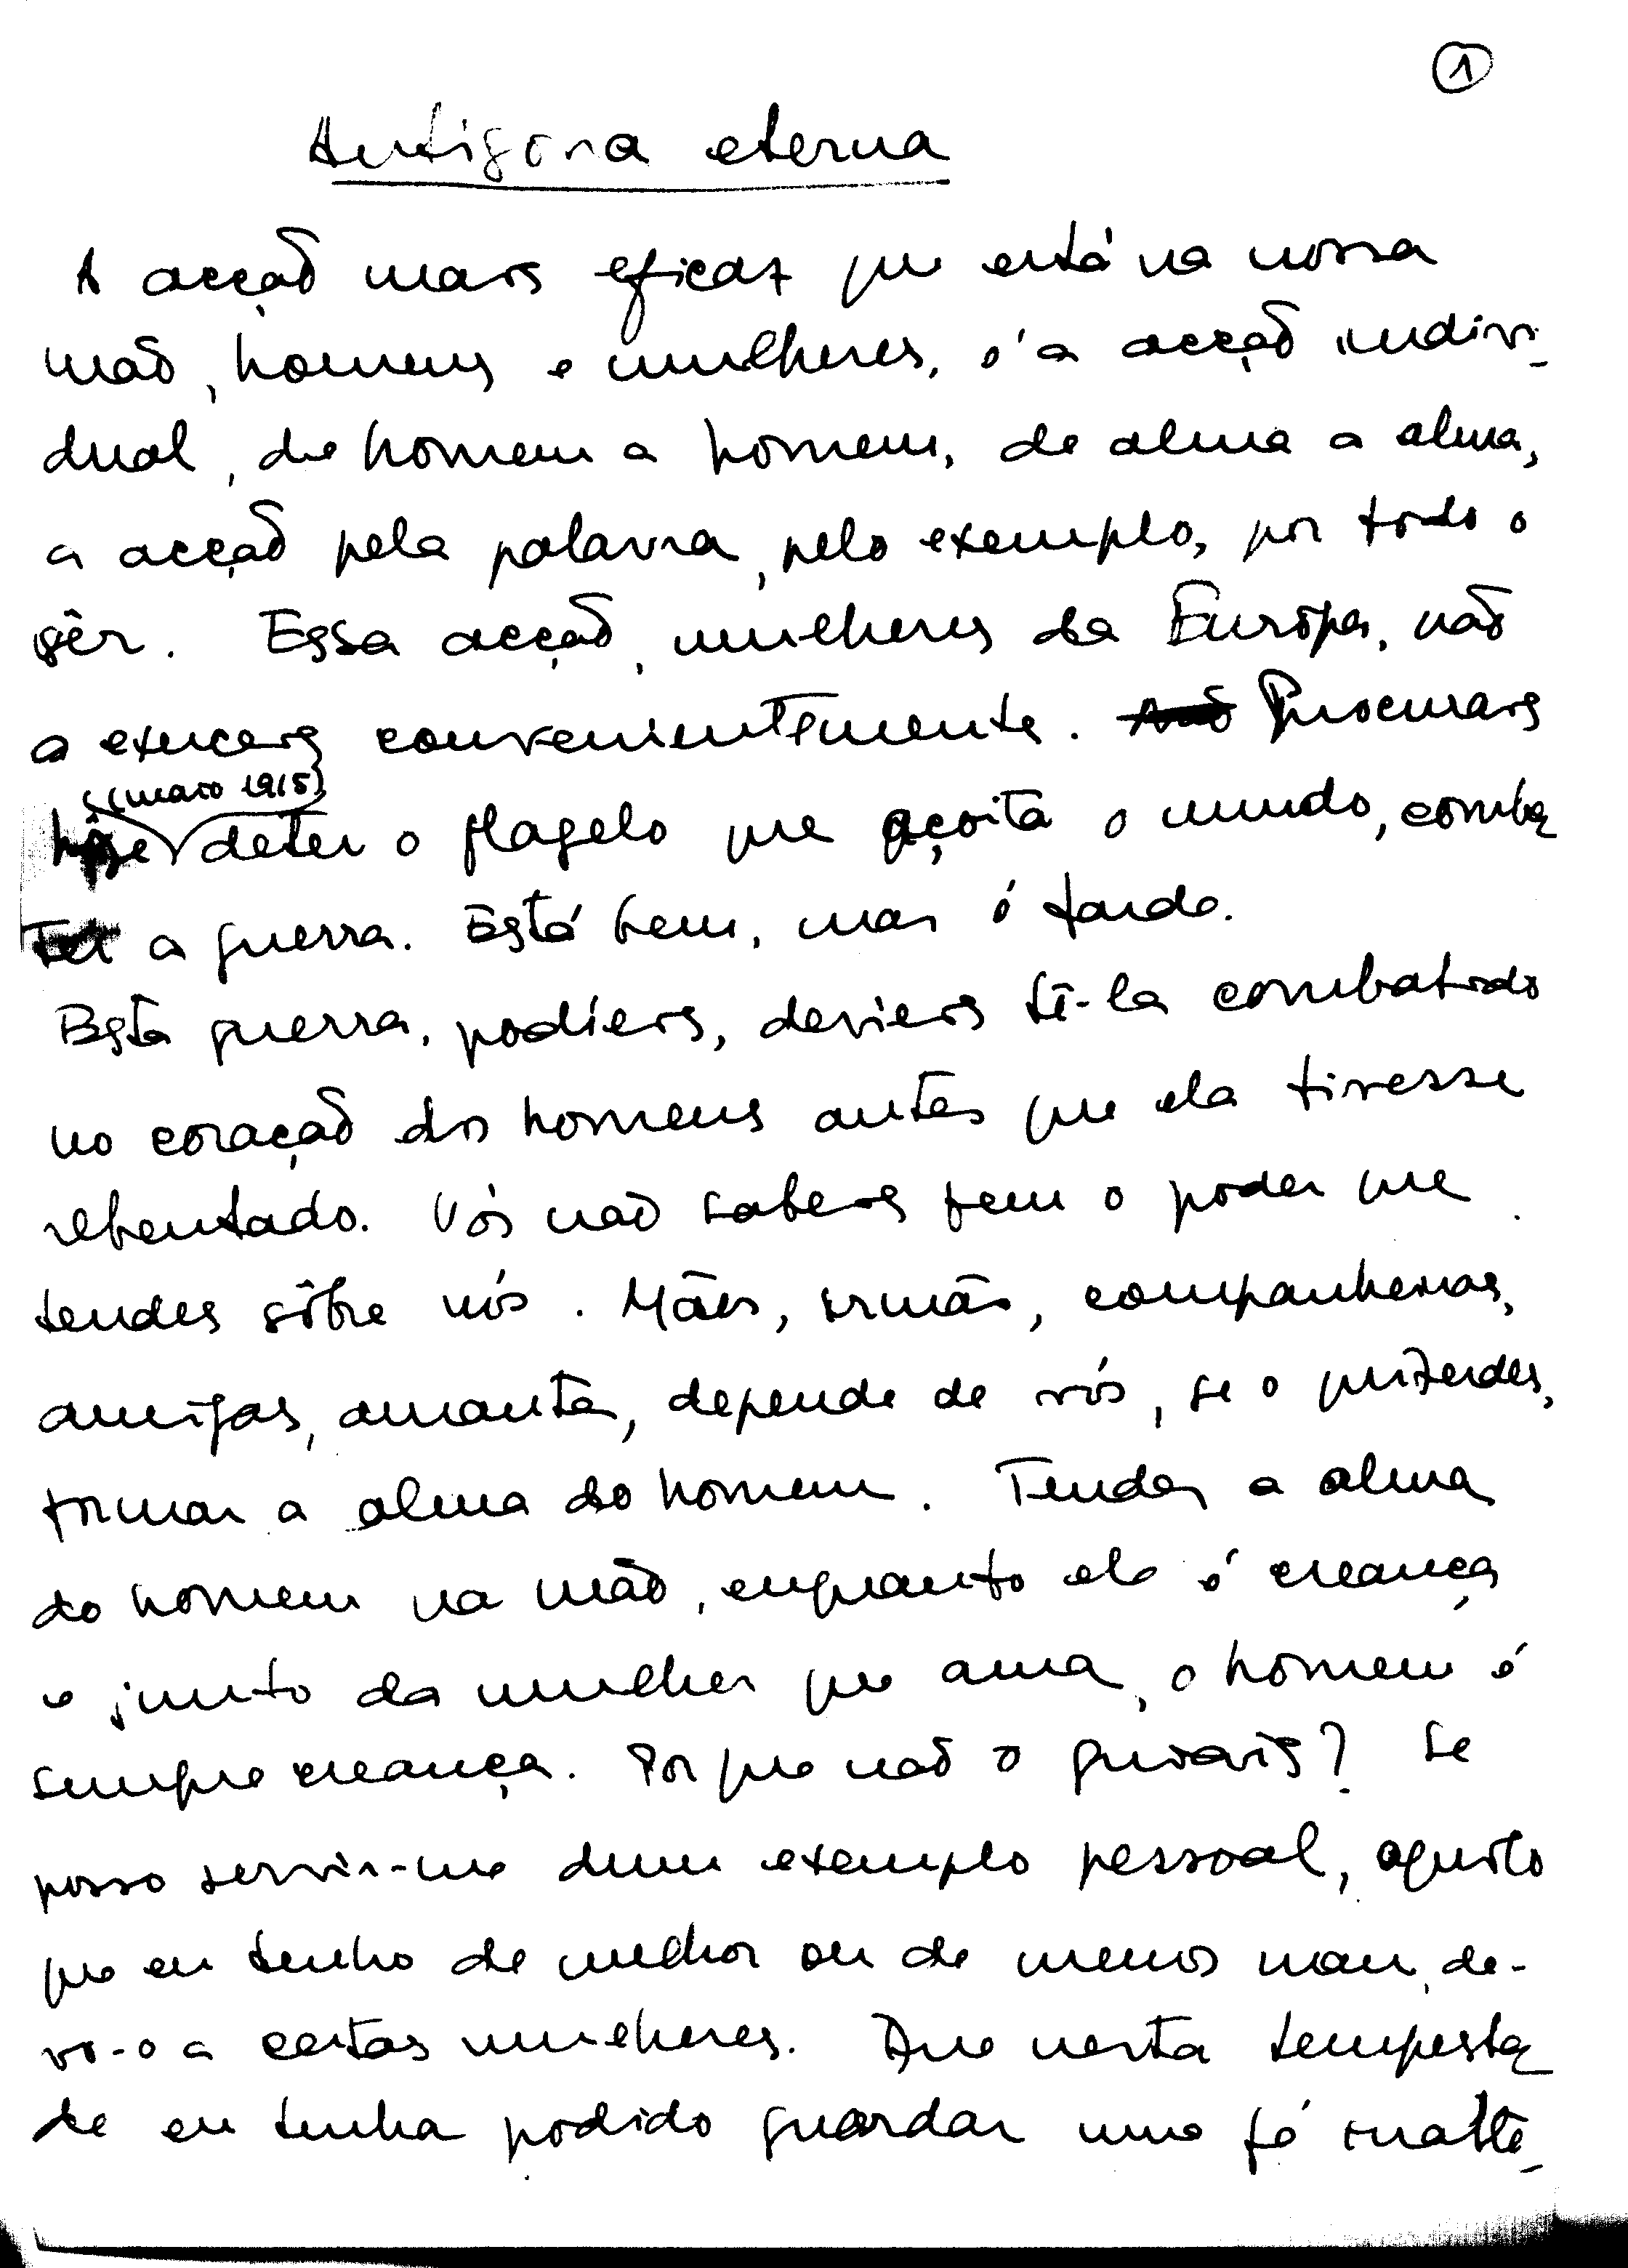 1
Antígona eterna
A acção mais eficaz que está na nossa
mão, homens e mulheres, é a acção indivi-
dual, de homem a homem, de alma a alma,
a acção pela palavra, pelo exemplo, por todo o
sêr. Essa acção, mulheres da Europa, não
a exerceis convenientemente. Procurais
(maio 1915)
hoje deter o flagelo que açoita o mundo, comba
ter a guerra. Está bem, mas é tarde.
Esta guerra, podíeis, devíeis tê-la combatido
no coração dos homens antes que ela tivesse
rebentado. Vós não sabeis bem o poder que
tendes sôbre nós. Mães, irmãs, companheiras,
amigas, amantes, depende de vós, se o quiserdes,
formar a alma do homem. Tendes a alma
do homem na mão, enquanto ele é creança
e junto da mulher que ama, o homem é
sempre creança. Por que não o guiais? Se
posso servir-me dum exemplo pessoal, aquilo
que eu tenho de melhor ou de menos mau, de-
vo-o a certas mulheres. Que nesta tempesta
de eu tenha podido guardar uma fé inalte-